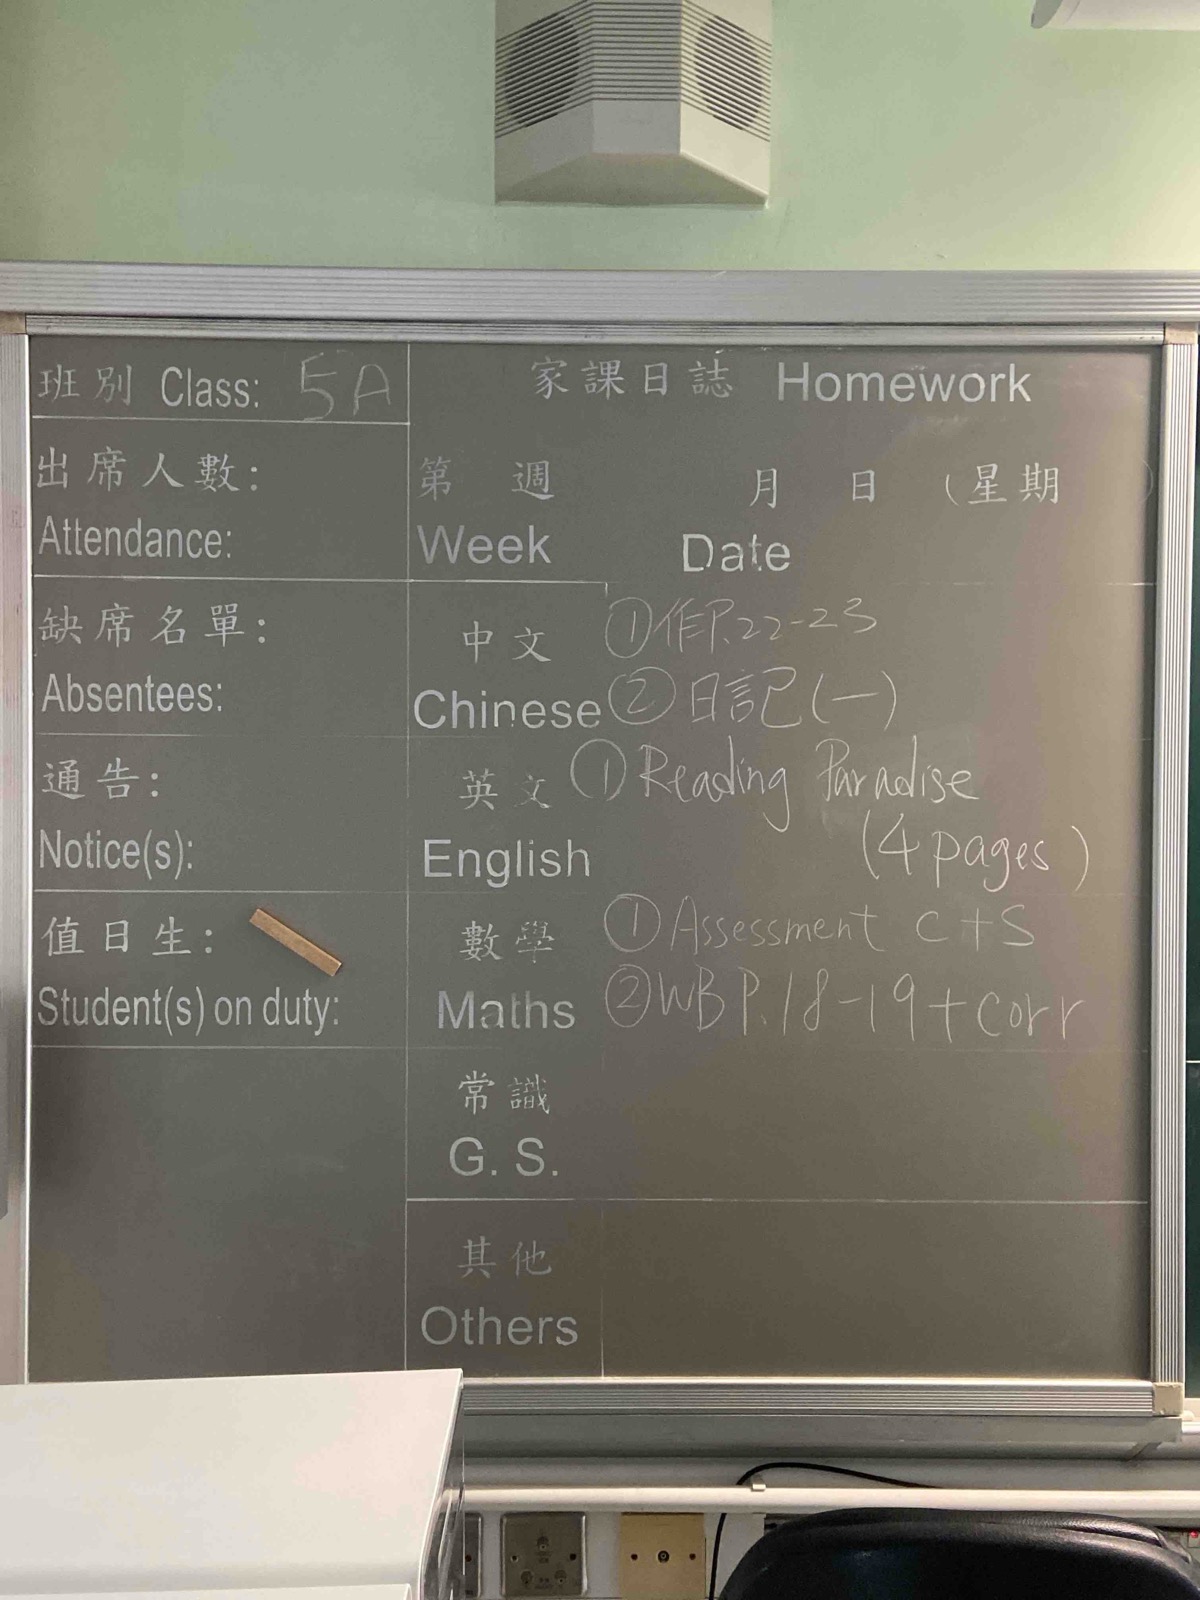 班別 Class: 5A
出席人數:
Attendance:
缺席名單:
Absentees:
通告:
Notice(s):
值日生:
Student(s) on duty:
家課日誌 Homework
第 週 月 日 (星期 )
Week Date
中文 ①作P.22-23
Chinese ②日記(一)
英文 ①Reading Paradise
English (4 pages)
數學 ①Assessment C+S
Maths ②WB P.18-19+corr
常識
G. S.
其他
Others